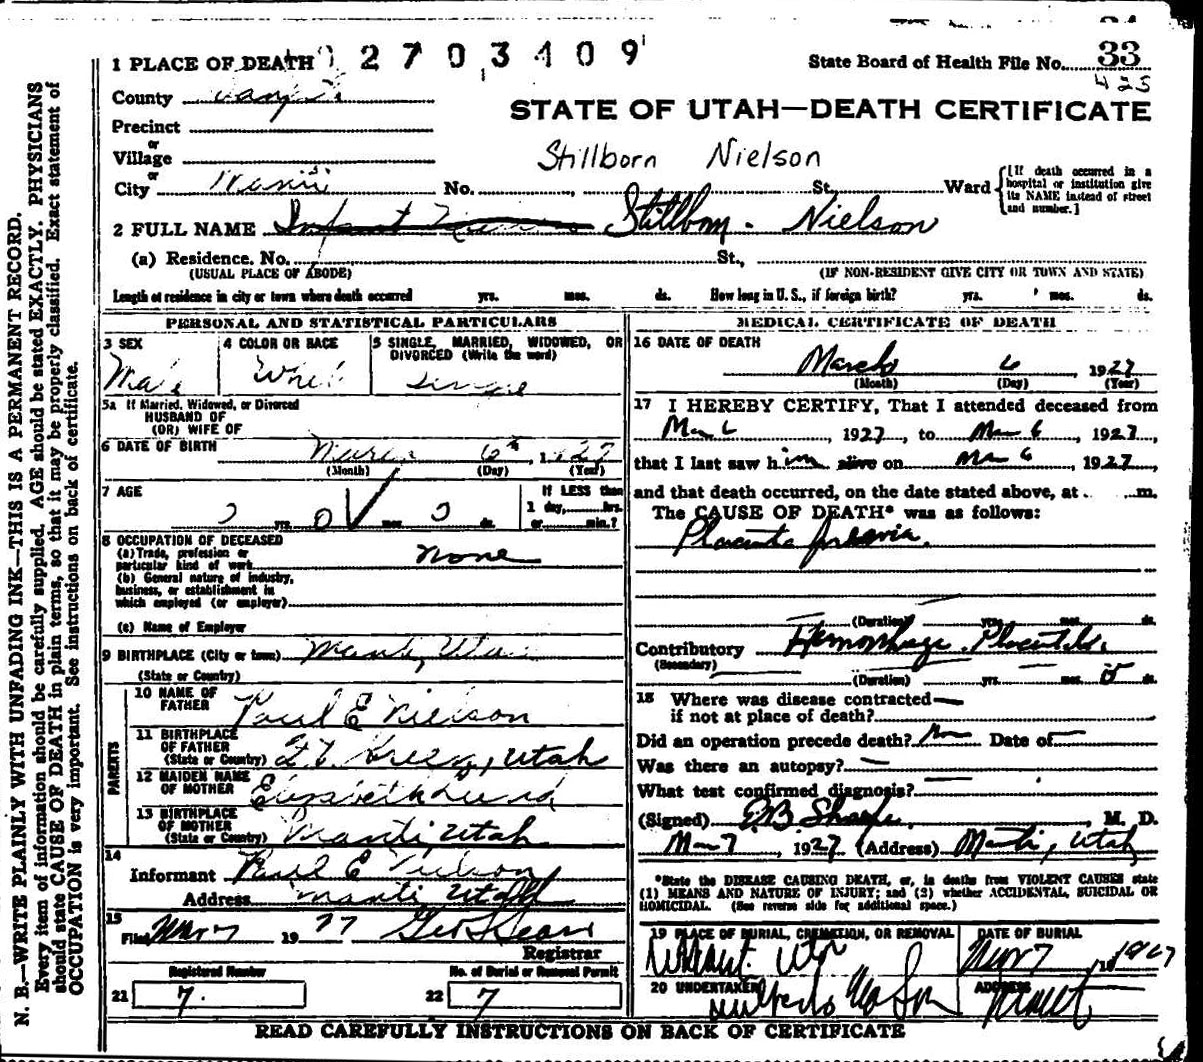 1 PLACE OF DEATH 2703409 State Board of Health File No. 33
425
County
STATE OF UTAH—DEATH CERTIFICATE
Precinct
or
Village
Stillborn Nielson
or
City Manti No. St. Ward [If death occurred in a hospital or institution give its NAME instead of street and number.]
2 FULL NAME Infant Stillborn - Nielson
(a) Residence. No. St.,
(USUAL PLACE OF ABODE) (IF NON-RESIDENT GIVE CITY OR TOWN AND STATE)
Length of residence in city or town where death occurred yrs. mos. ds. How long in U. S., if foreign birth? yrs. mos. ds.
PERSONAL AND STATISTICAL PARTICULARS
3 SEX 4 COLOR OR RACE 5 SINGLE, MARRIED, WIDOWED, OR
DIVORCED (Write the word)
Male White Single
5a If Married, Widowed, or Divorced
HUSBAND OF
(OR) WIFE OF
6 DATE OF BIRTH March 6th 1927
(Month) (Day) (Year)
7 AGE If LESS than
0 yrs. 0 mos. 0 ds. 1 day, hrs.
or min.?
8 OCCUPATION OF DECEASED
(a) Trade, profession or
particular kind of work none
(b) General nature of industry,
business, or establishment in
which employed (or employer)
(c) Name of Employer
9 BIRTHPLACE (City or town) Manti, Utah
(State or Country)
PARENTS
10 NAME OF
FATHER Paul E Nielson
11 BIRTHPLACE
OF FATHER
(State or Country) Ft. Green, Utah
12 MAIDEN NAME
OF MOTHER Elizabeth Lund
13 BIRTHPLACE
OF MOTHER
(State or Country) Manti, Utah
14
Informant Paul E Nielson
Address Manti Utah
15
Filed Mar 7 1927
Registrar
Registered Number No. of Burial or Removal Permit
21 7. 22 7
MEDICAL CERTIFICATE OF DEATH
16 DATE OF DEATH
March 6 1927
(Month) (Day) (Year)
17 I HEREBY CERTIFY, That I attended deceased from
Mar 6, 1927, to Mar 6, 1927,
that I last saw him alive on Mar 6, 1927
and that death occurred, on the date stated above, at m.
The CAUSE OF DEATH* was as follows:
Placenta previa.
(Duration) yrs. mos. ds.
Contributory Hemorrhage.
(Secondary)
(Duration) yrs. mos. ds.
18 Where was disease contracted
if not at place of death?
Did an operation precede death? Date of
Was there an autopsy?
What test confirmed diagnosis?
(Signed) M. D.
Mar 7 1927 (Address) Manti, Utah
*State the DISEASE CAUSING DEATH, or, in deaths from VIOLENT CAUSES state
(1) MEANS AND NATURE OF INJURY; and (2) whether ACCIDENTAL, SUICIDAL OR
HOMICIDAL. (See reverse side for additional space.)
19 PLACE OF BURIAL, CREMATION, OR REMOVAL DATE OF BURIAL
Mar 7 1927
20 UNDERTAKER ADDRESS
READ CAREFULLY INSTRUCTIONS ON BACK OF CERTIFICATE
N. B.—WRITE PLAINLY WITH UNFADING INK—THIS IS A PERMANENT RECORD.
Every item of information should be carefully supplied. AGE should be stated EXACTLY. PHYSICIANS
should state CAUSE OF DEATH in plain terms, so that it may be properly classified. Exact statement of
OCCUPATION is very important. See instructions on back of certificate.